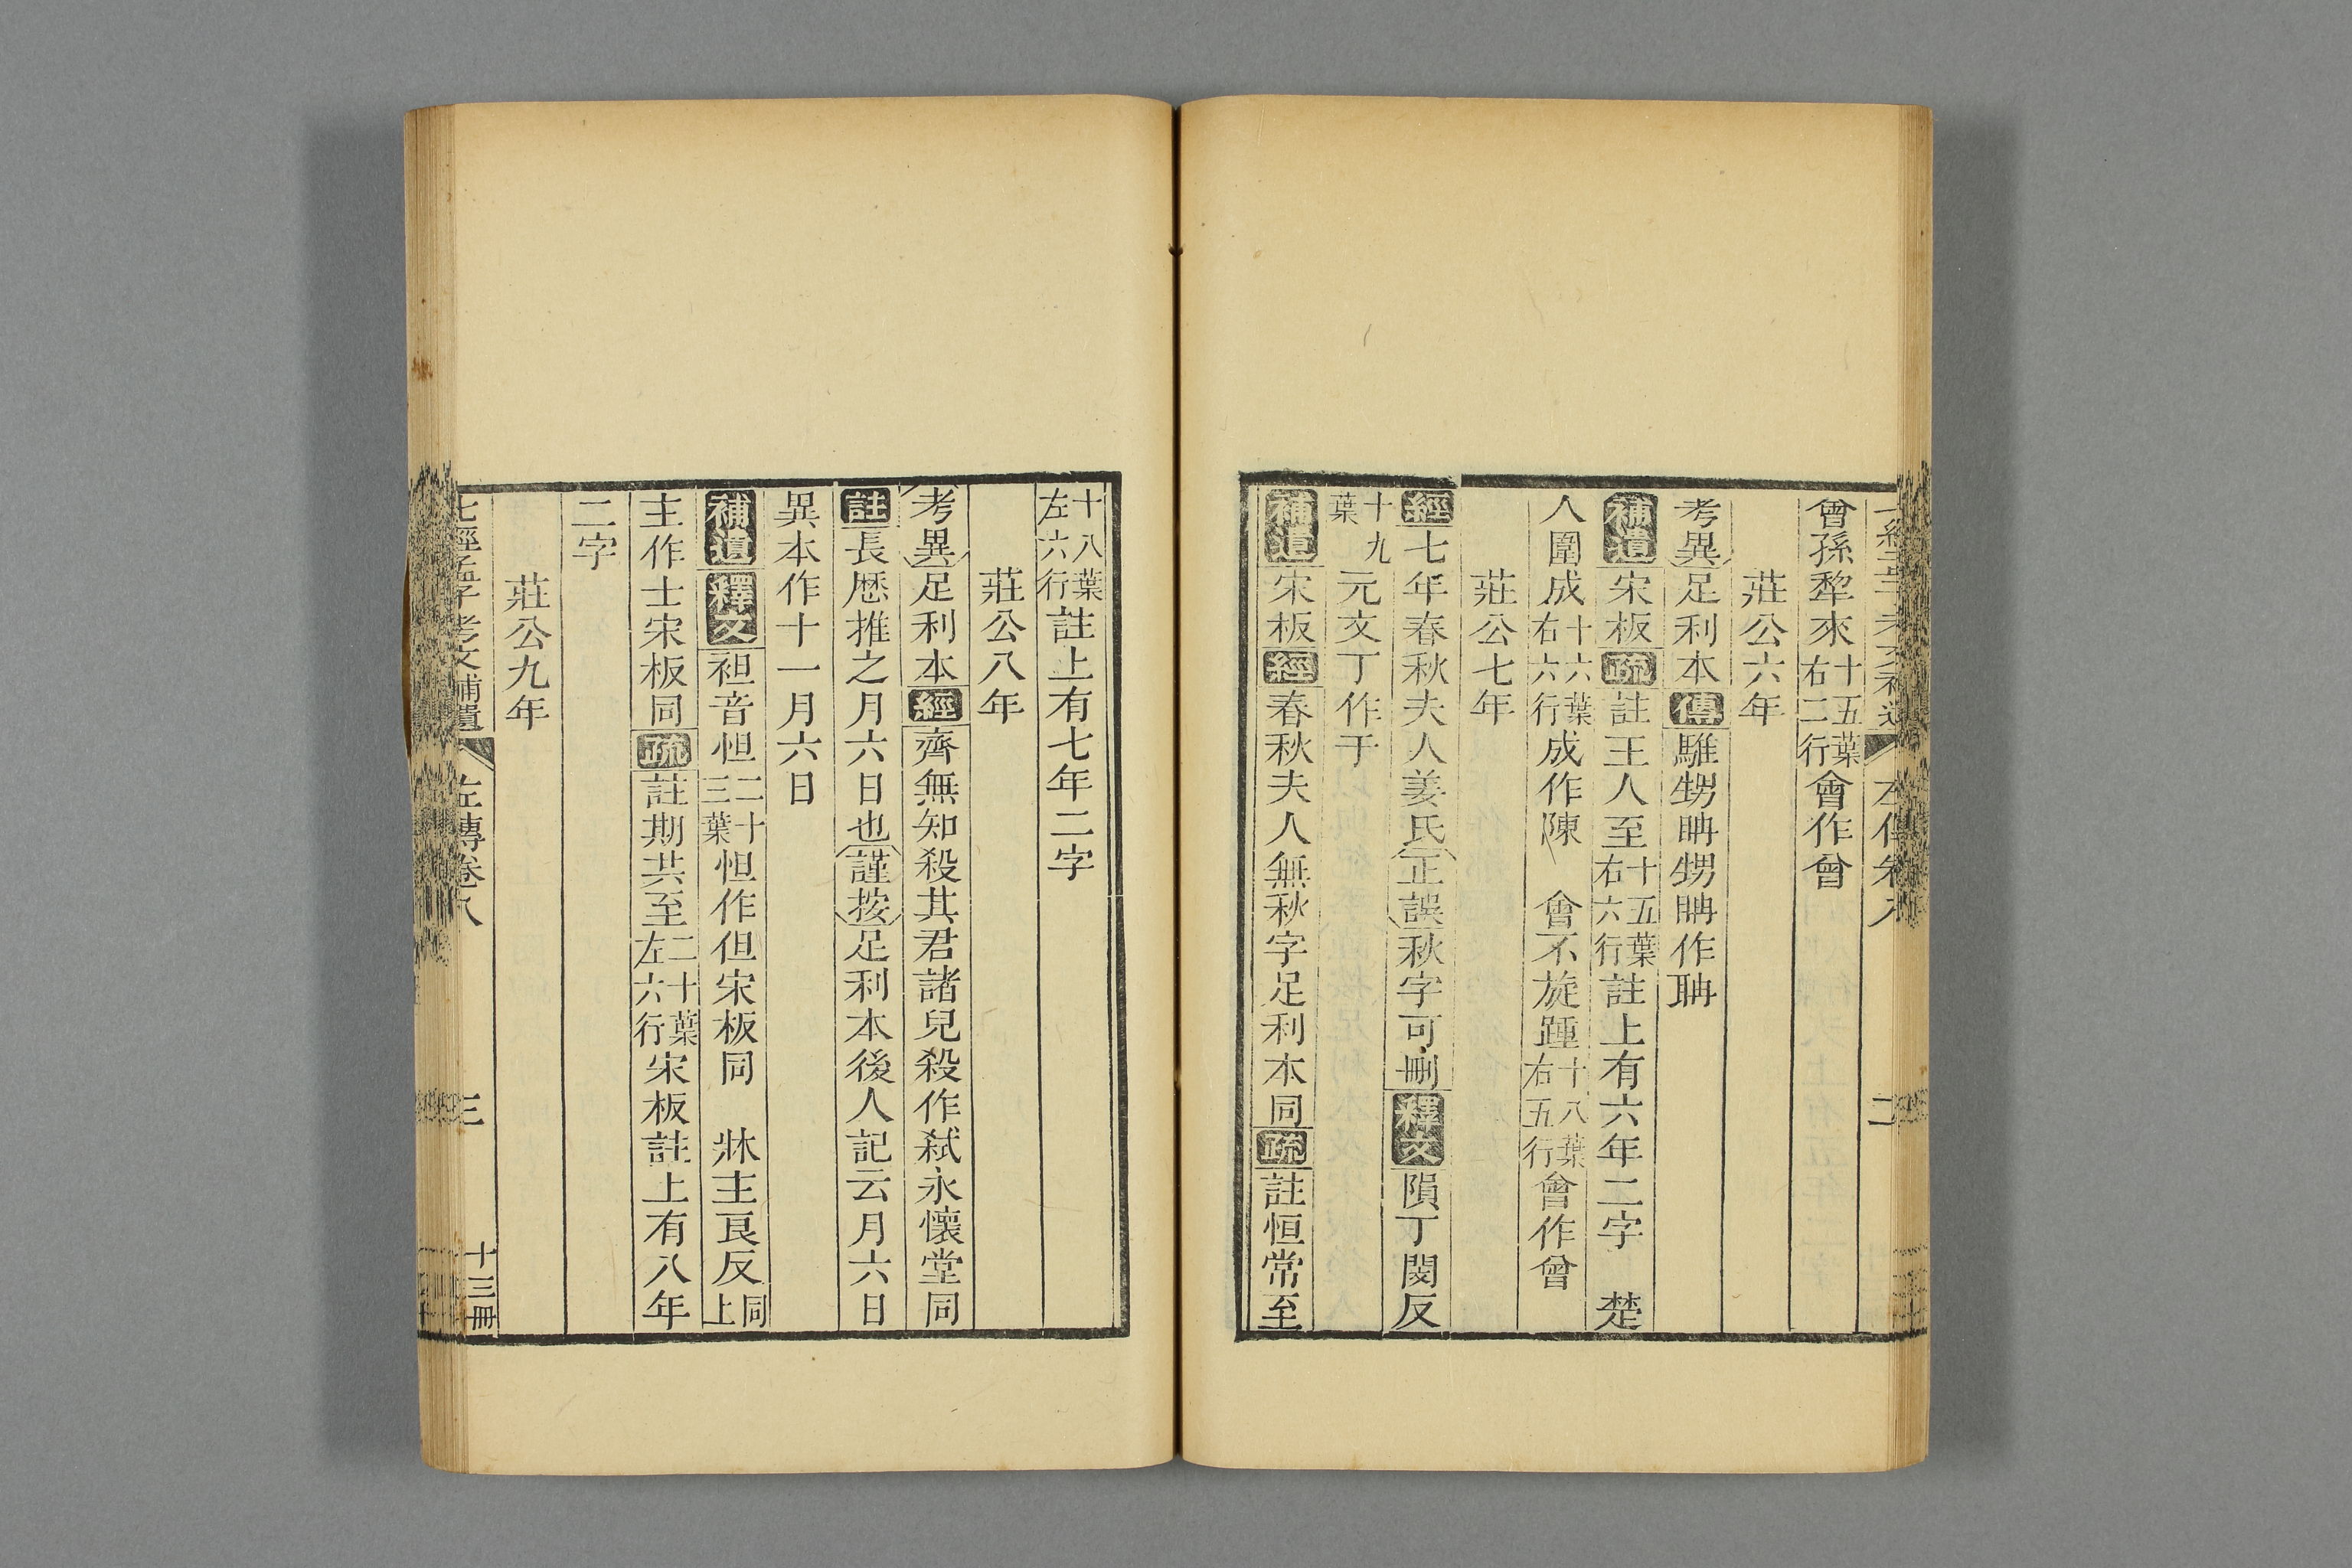 七經孟子考文補遺 左傳卷八 二
曾孫犂來十五葉右二行會作曾
莊公六年
考異足利本傳騅甥聃甥聃作聃
補遺宋板疏註王人至十五葉右六行註上有六年二字 楚
人圍成十六葉右六行成作陳 會不旋踵十八葉右五行會作曾
莊公七年
經七年春秋夫人姜氏正誤秋字可刪釋文隕丁閔反
十九葉元文丁作于
補遺宋板經春秋夫人無秋字足利本同疏註恒常至
十八葉左六行註上有七年二字
莊公八年
考異足利本經齊無知殺其君諸兒殺作弑永懷堂同
註長厯推之月六日也謹按足利本後人記云月六日
異本作十一月六日
補遺釋文袒音怛二十三葉怛作但宋板同 牀主艮反同上
主作士宋板同疏註期共至二十葉左六行宋板註上有八年
二字
莊公九年
七經孟子考文補遺 左傳卷八 三 十三冊